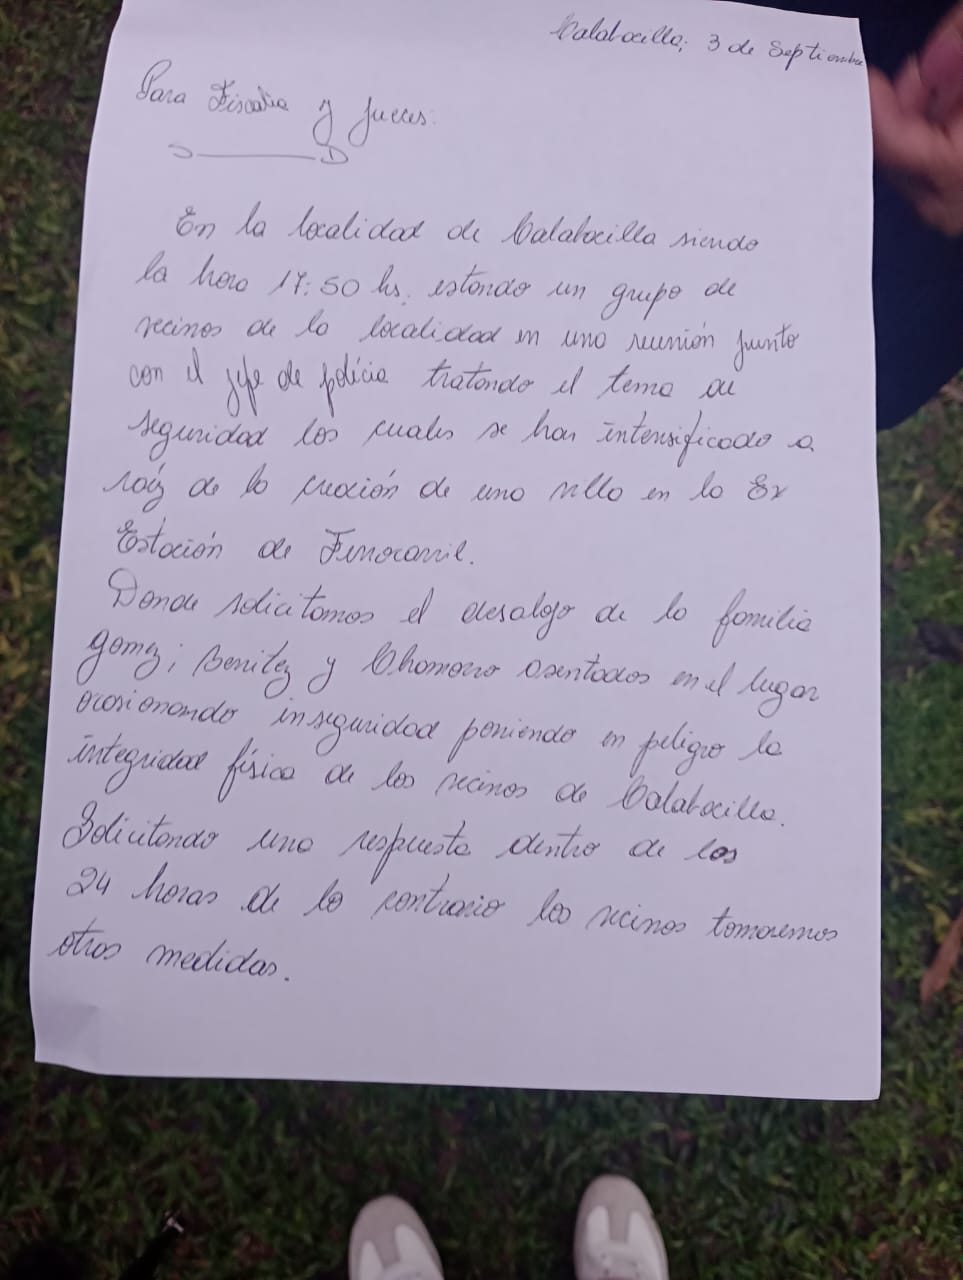 Calabacilla; 3 de Septiembre
Para Fiscalia y Jueces:
En la localidad de Calabacilla siendo
la hora 17:50 hs. estando un grupo de
vecinos de la localidad en una reunión junto
con el jefe de policia tratando el tema de
seguridad los cuales se han intensificado a
raiz de la creación de una villa en la Ex
Estación de Ferrocarril.
Donde solicitamos el desalojo de la familia
Gomez; Benitez y Chamorro asentados en el lugar
ocasionando inseguridad poniendo en peligro la
integridad física de los vecinos de Calabacilla.
Solicitando una respuesta dentro de las
24 horas de lo contrario los vecinos tomaremos
otras medidas.